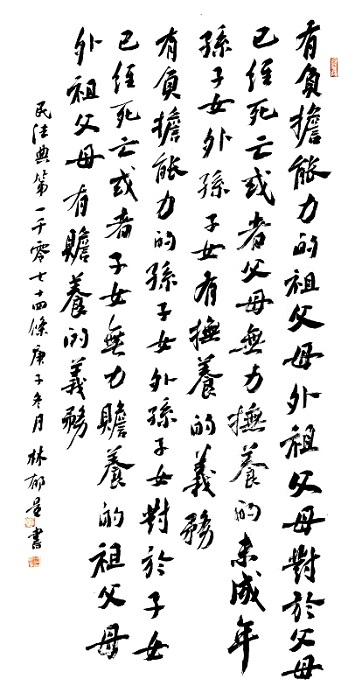 有負擔能力的祖父母外祖父母對於父母
已經死亡或者父母無力撫養的未成年
孫子女外孫子女有撫養的義務
有負擔能力的孫子女外孫子女對於子女
已經死亡或者子女無力贍養的祖父母
外祖父母有贍養的義務
民法典第一千零七十四條庚子冬月林郁星書